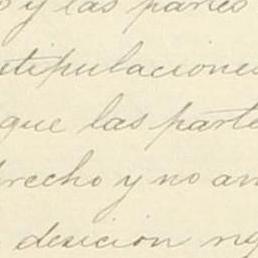 o y las partes
stipulaciones
que las parte
erecho y no an
desicion neg